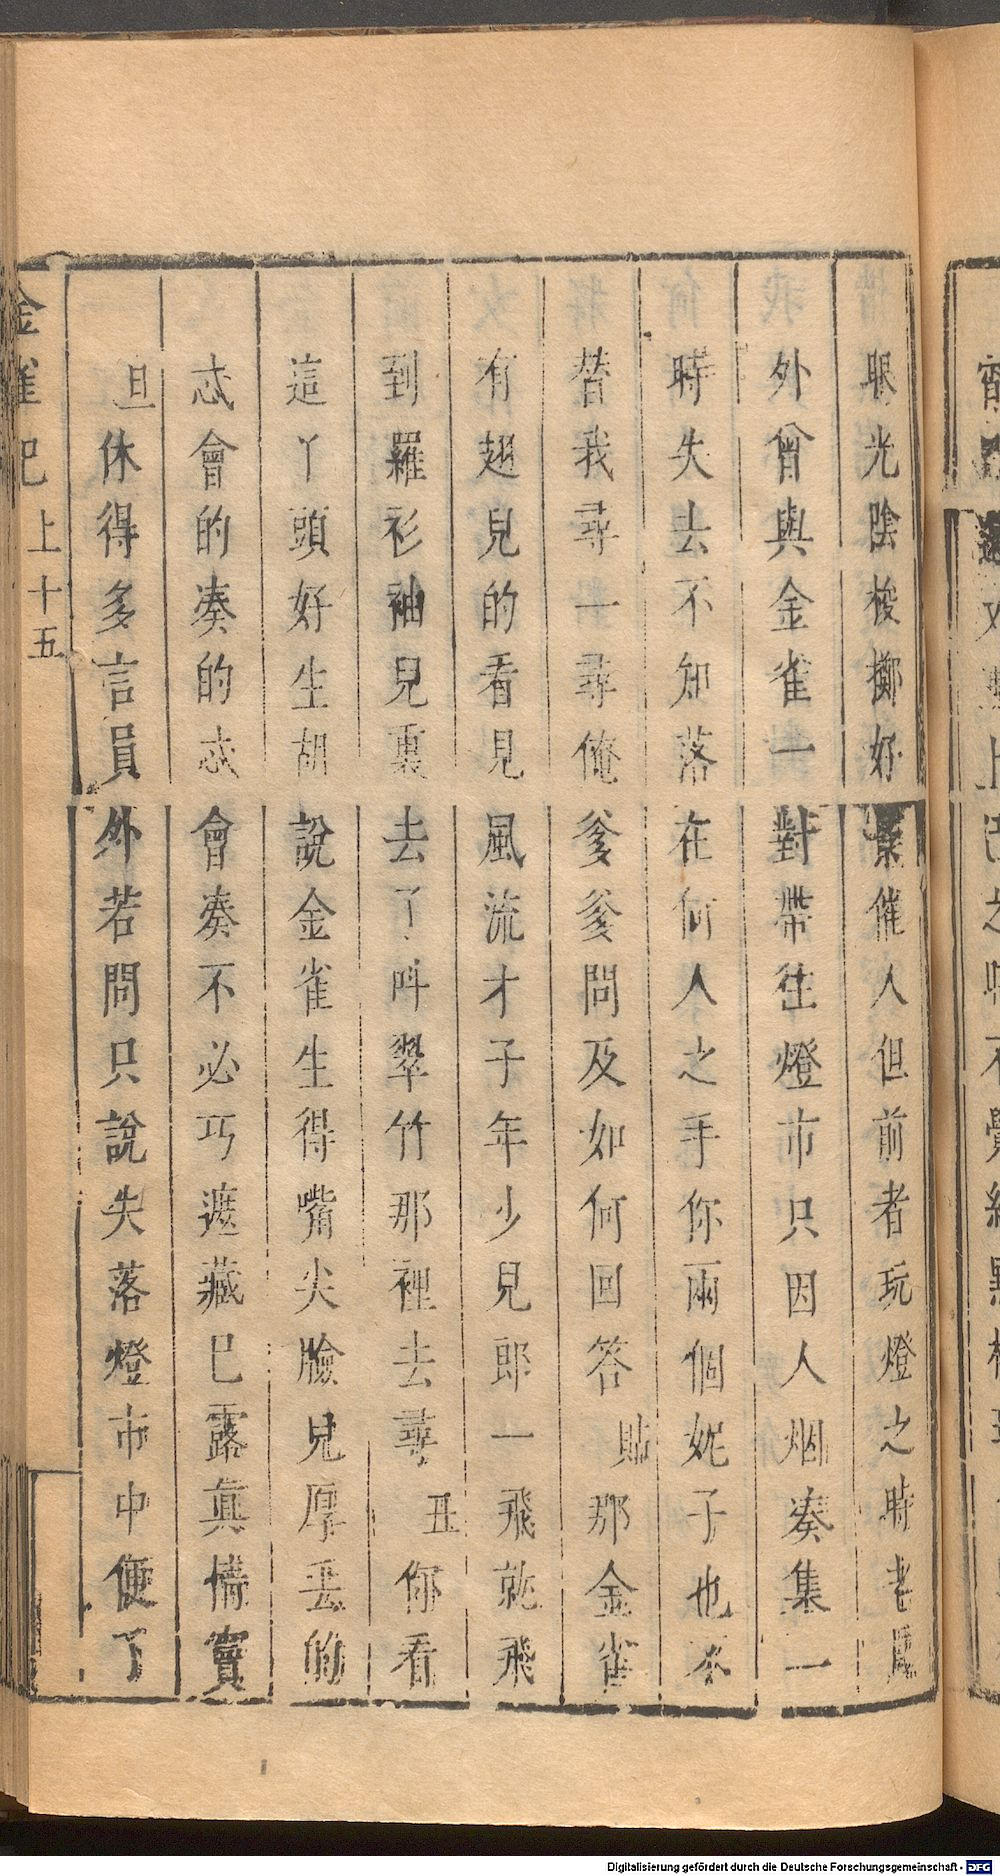 眼光陰梭擲好景催人但前者玩燈之時老員
外曾與金雀一對帶往燈市只因人烟湊集一
時失去不知落在何人之手你兩個妮子也不
替我尋一尋俺爹爹問及如何回答貼那金雀
有翅兒的看見風流才子年少兒郎一飛就飛
到羅衫袖兒裏去了呌翠竹那裡去尋丑你看
這丫頭好生胡說金雀生得嘴尖臉兒厚丟的
忒會的湊的忒會湊不必巧遮藏巳露眞情實
旦休得多言員外若問只說失落燈市中便了
金雀記 上十五
Digitalisierung gefördert durch die Deutsche Forschungsgemeinschaft - DFG